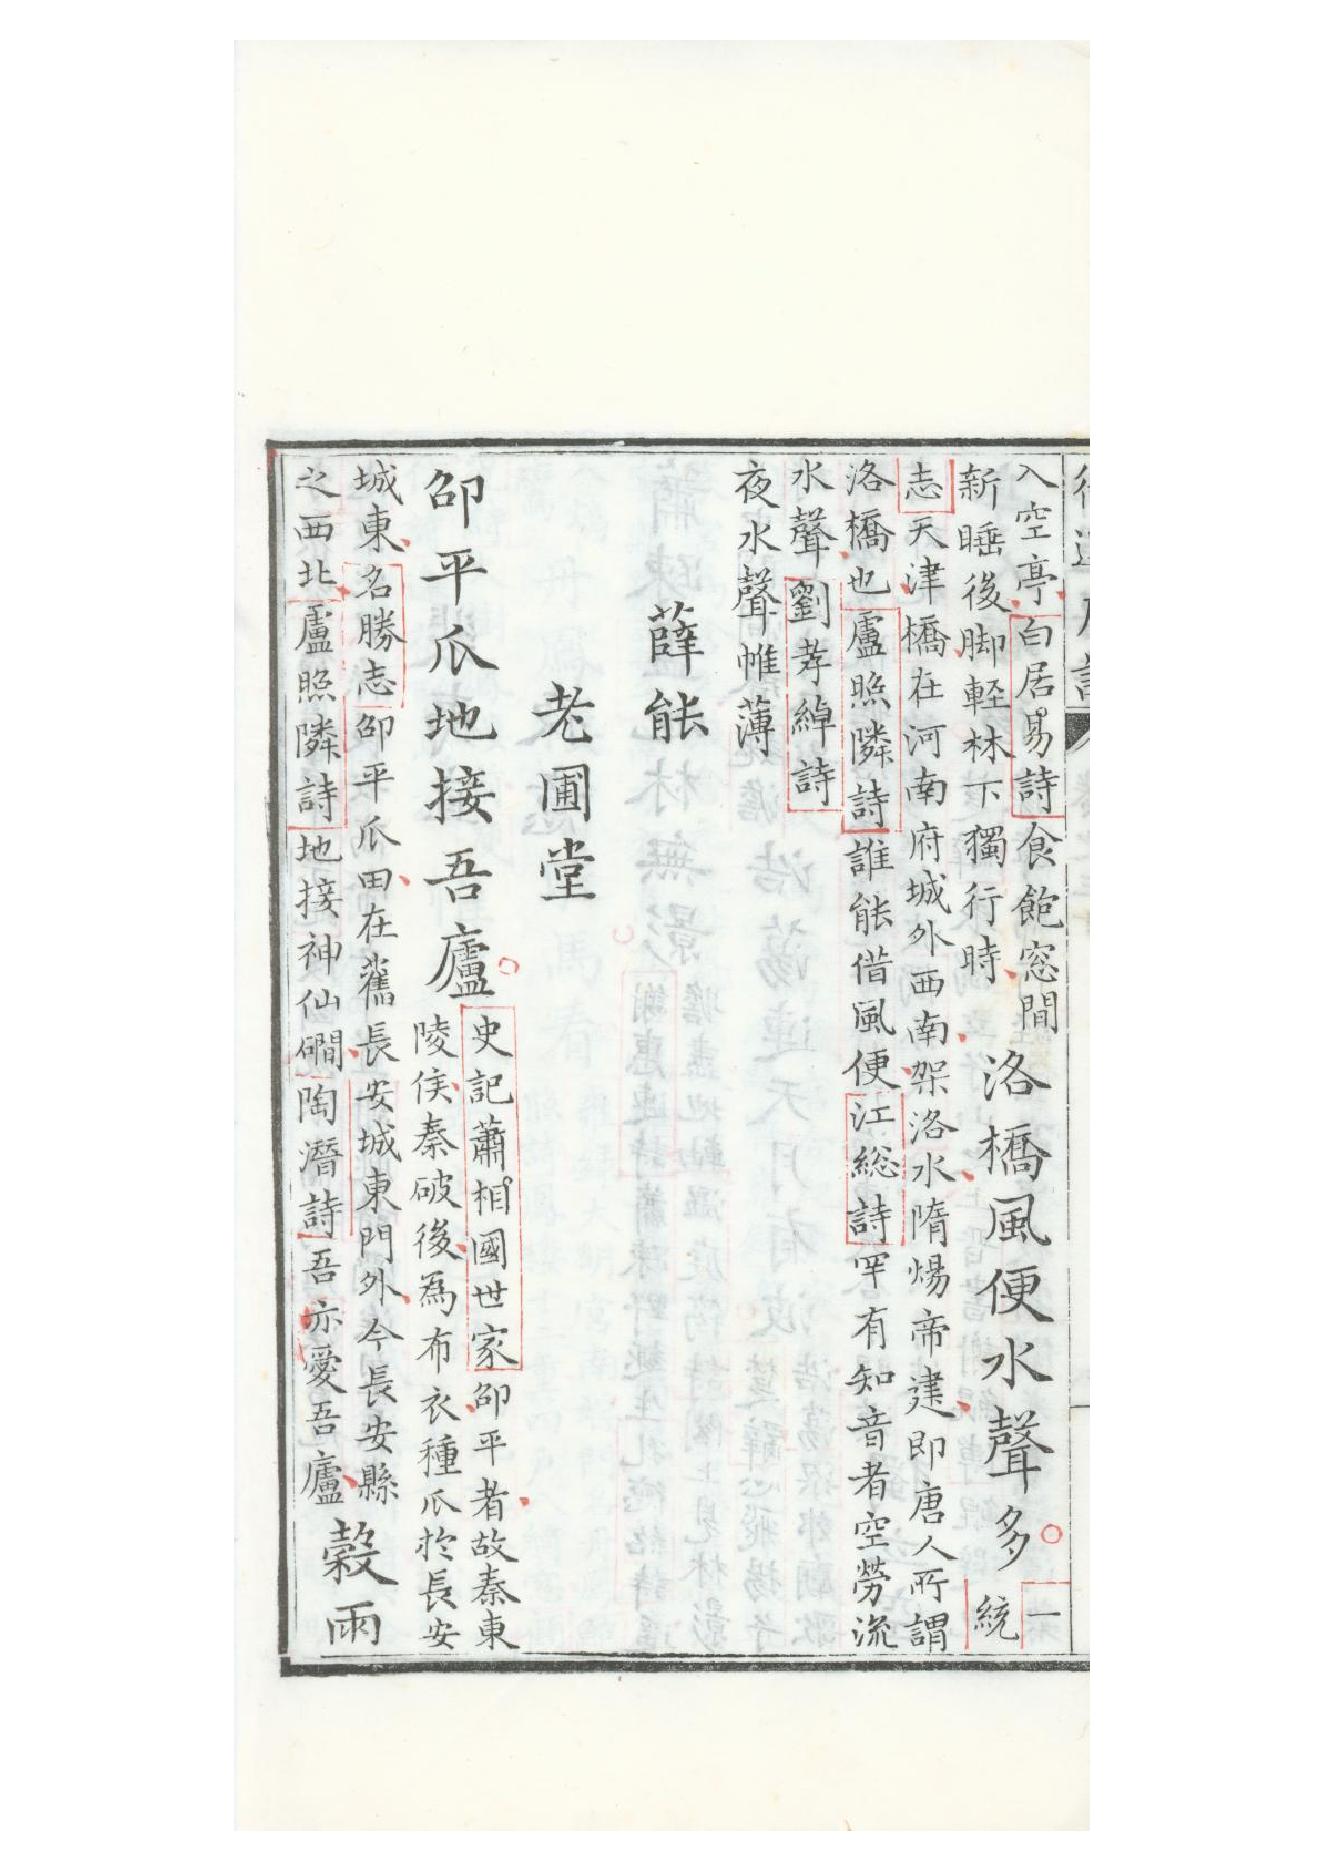 入空亭白居易詩食飽窓間
新睡後脚軽林下獨行時
洛橋風便水聲多
一
統
志天津橋在河南府城外西南架洛水隋煬帝建即唐人所謂
洛橋也盧照隣詩誰能借風便江総詩罕有知音者空勞流
水聲劉孝綽詩
夜水聲帷薄
薛能
老圃堂
邵平瓜地接吾廬
史記蕭相國世家邵平者故秦東
陵侯秦破後為布衣種瓜於長安
城東名勝志邵平瓜田在舊長安城東門外今長安縣
之西北盧照隣詩地接神仙磵陶潛詩吾亦愛吾廬
穀雨